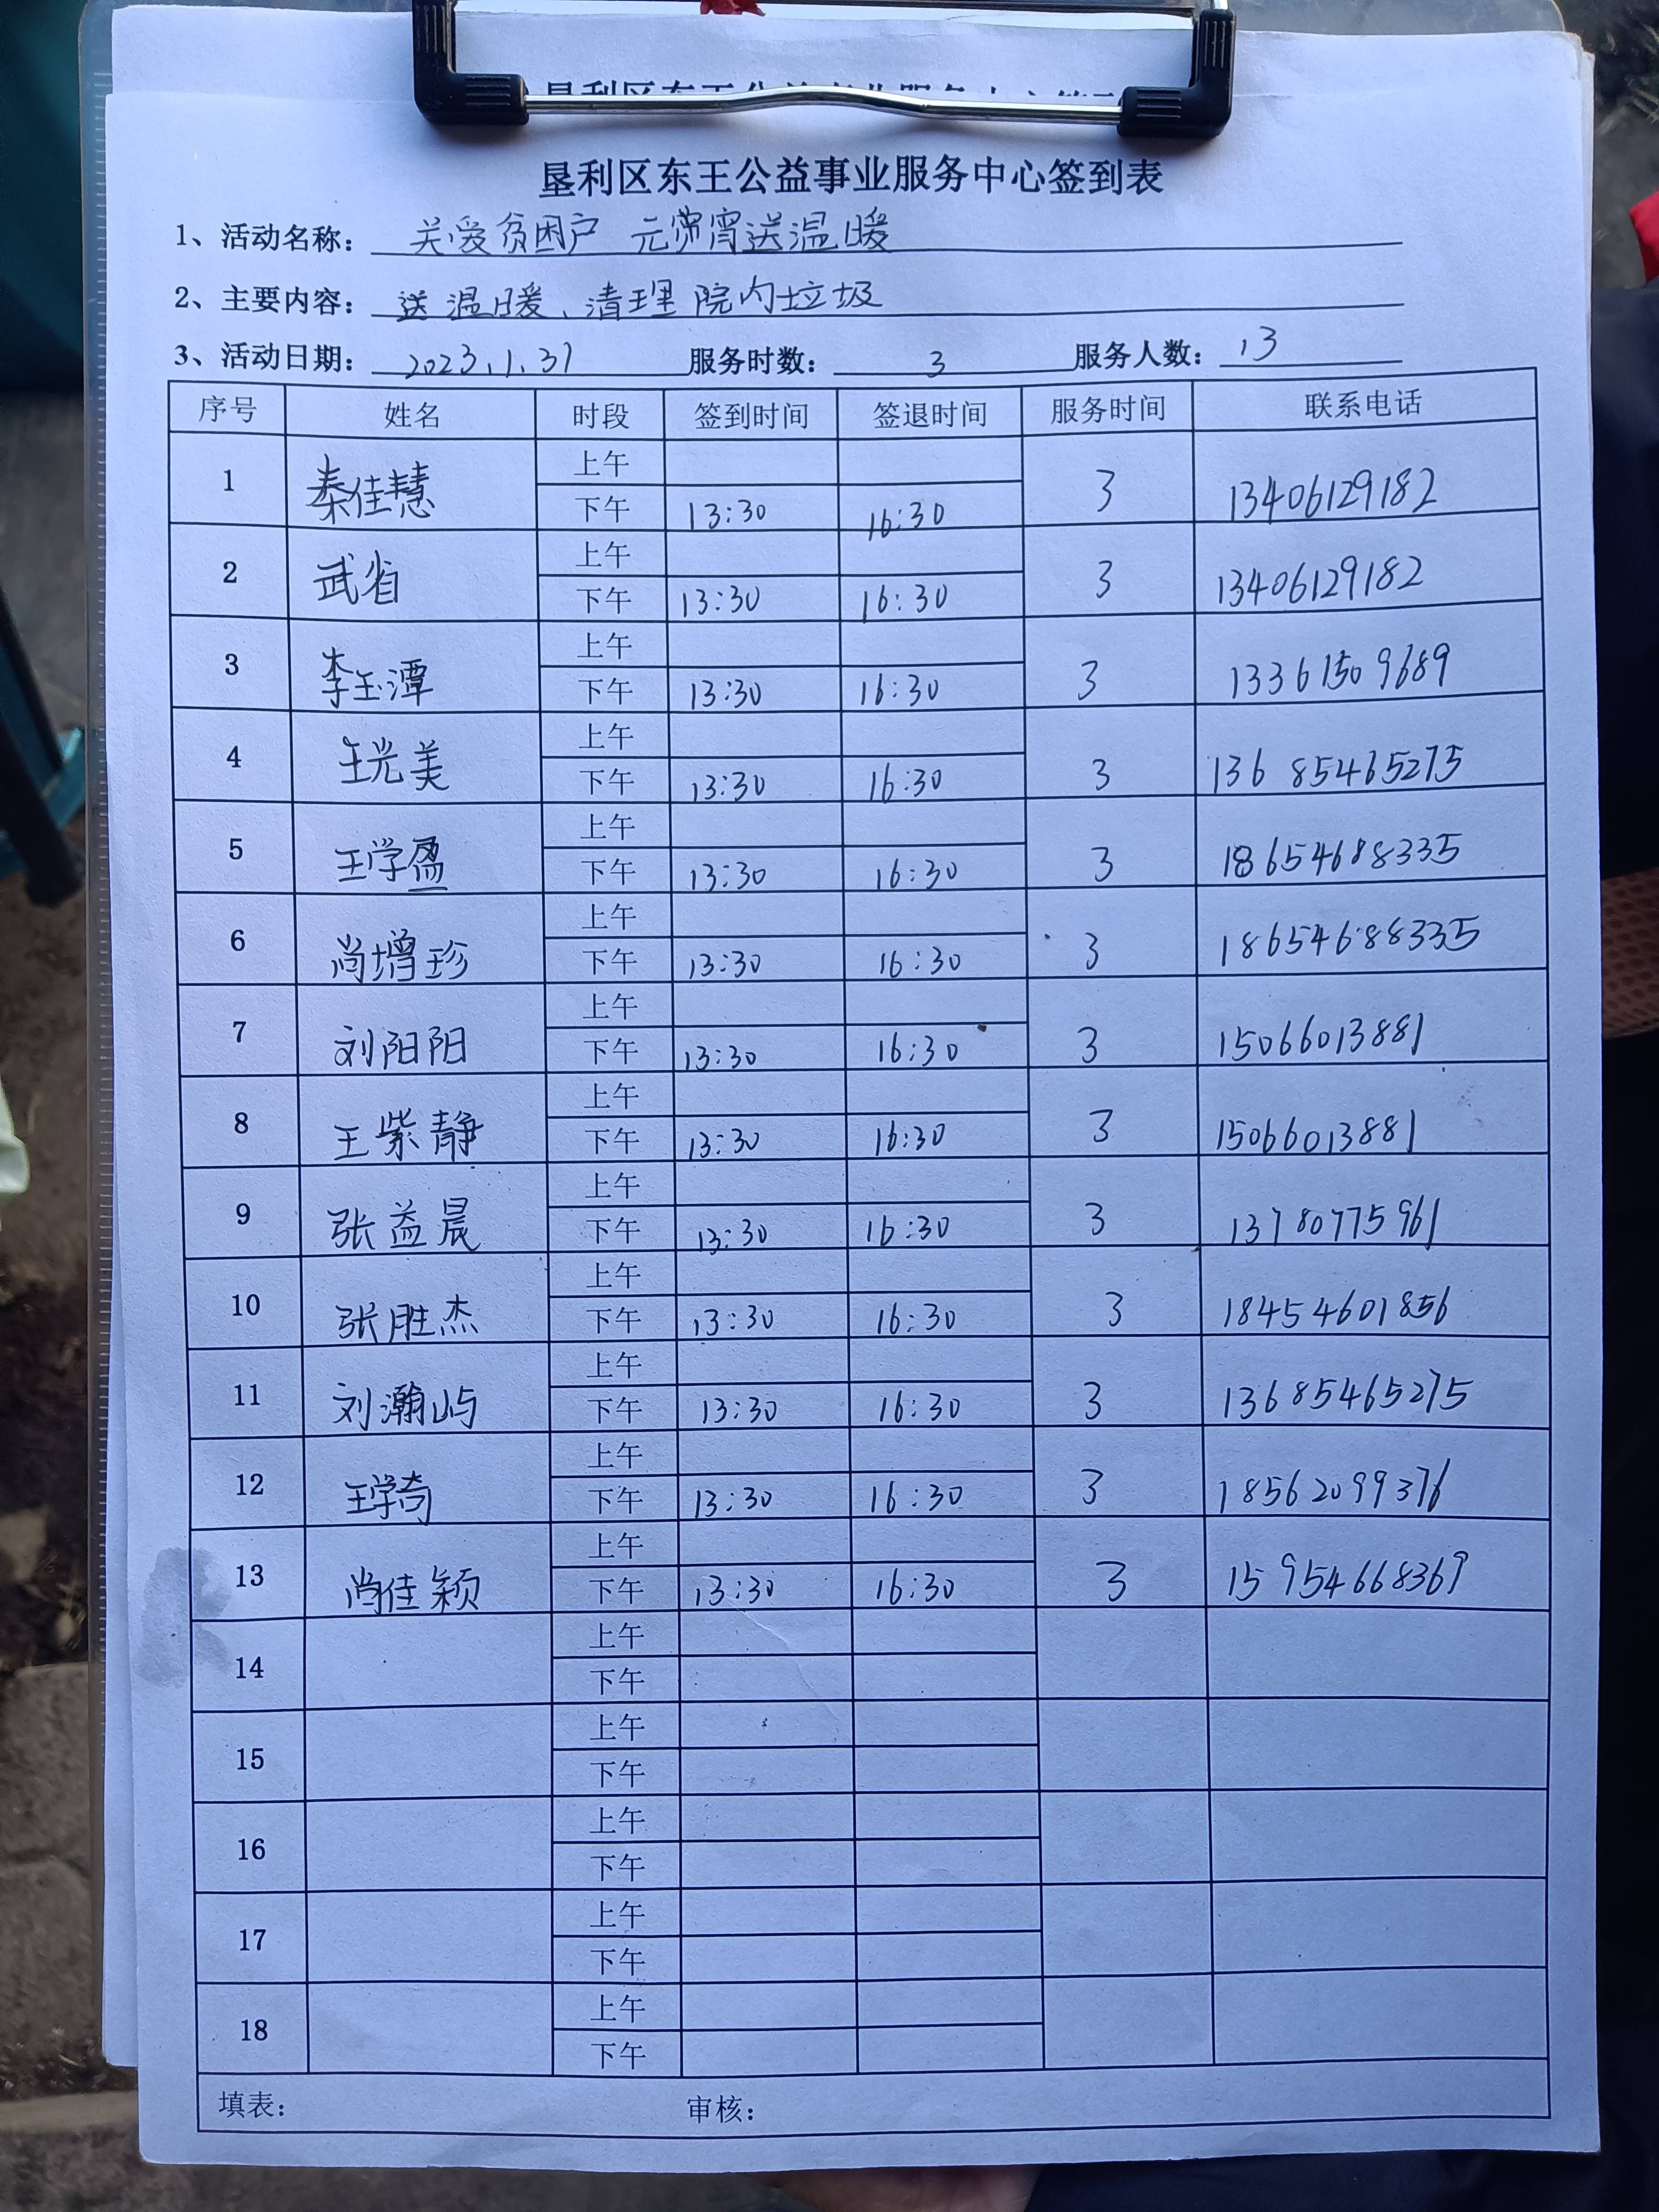 垦利区东王公益事业服务中心签到表
1、活动名称： 关爱贫困户 元宵宵送温暖
2、主要内容： 送温暖、清理院内垃圾
3、活动日期： 2023.1.31 服务时数： 3 服务人数： 13
序号 姓名 时段 签到时间 签退时间 服务时间 联系电话
1 秦佳慧 上午 3 13406129182
下午 13:30 16:30
2 武省 上午 3 13406129182
下午 13:30 16:30
3 李玉潭 上午 3 13361509689
下午 13:30 16:30
4 王光美 上午 3 136 85465275
下午 13:30 16:30
5 王学盈 上午 3 18654688335
下午 13:30 16:30
6 尚增珍 上午 3 18654688335
下午 13:30 16:30
7 刘阳阳 上午 3 15066013881
下午 13:30 16:30
8 王紫静 上午 3 15066013881
下午 13:30 16:30
9 张益晨 上午 3 13780775961
下午 13:30 16:30
10 张胜杰 上午 3 18454601856
下午 13:30 16:30
11 刘瀚屿 上午 3 13685465275
下午 13:30 16:30
12 王学奇 上午 3 18562099376
下午 13:30 16:30
13 尚佳颖 上午 3 15954668369
下午 13:30 16:30
14 上午
下午
15 上午
下午
16 上午
下午
17 上午
下午
18 上午
下午
填表： 审核：